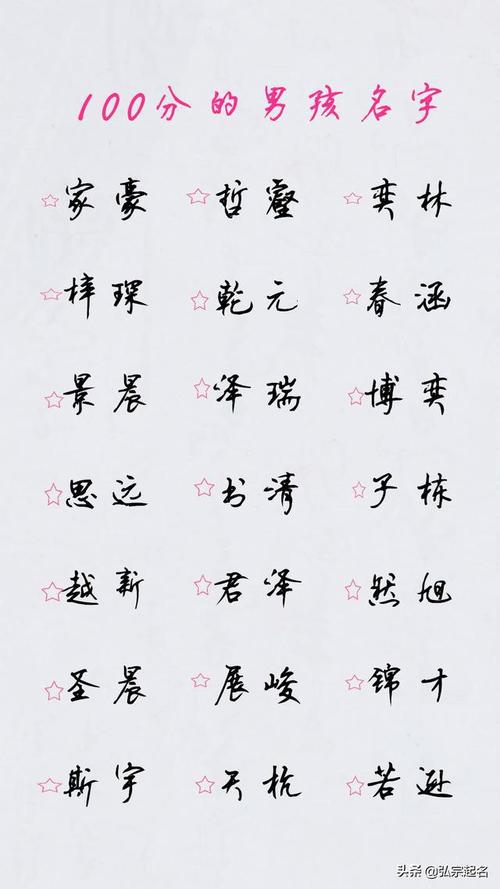 100分的男孩名字
☆家豪 ☆哲睿 ☆奕林
☆梓琛 ☆乾元 ☆春涵
☆景晨 ☆泽瑞 ☆博奕
☆思远 ☆书清 ☆子栋
☆越新 ☆君泽 ☆然旭
☆圣晨 ☆展峻 ☆锦才
☆斯宇 ☆天杭 ☆若逊
头条@弘宗起名